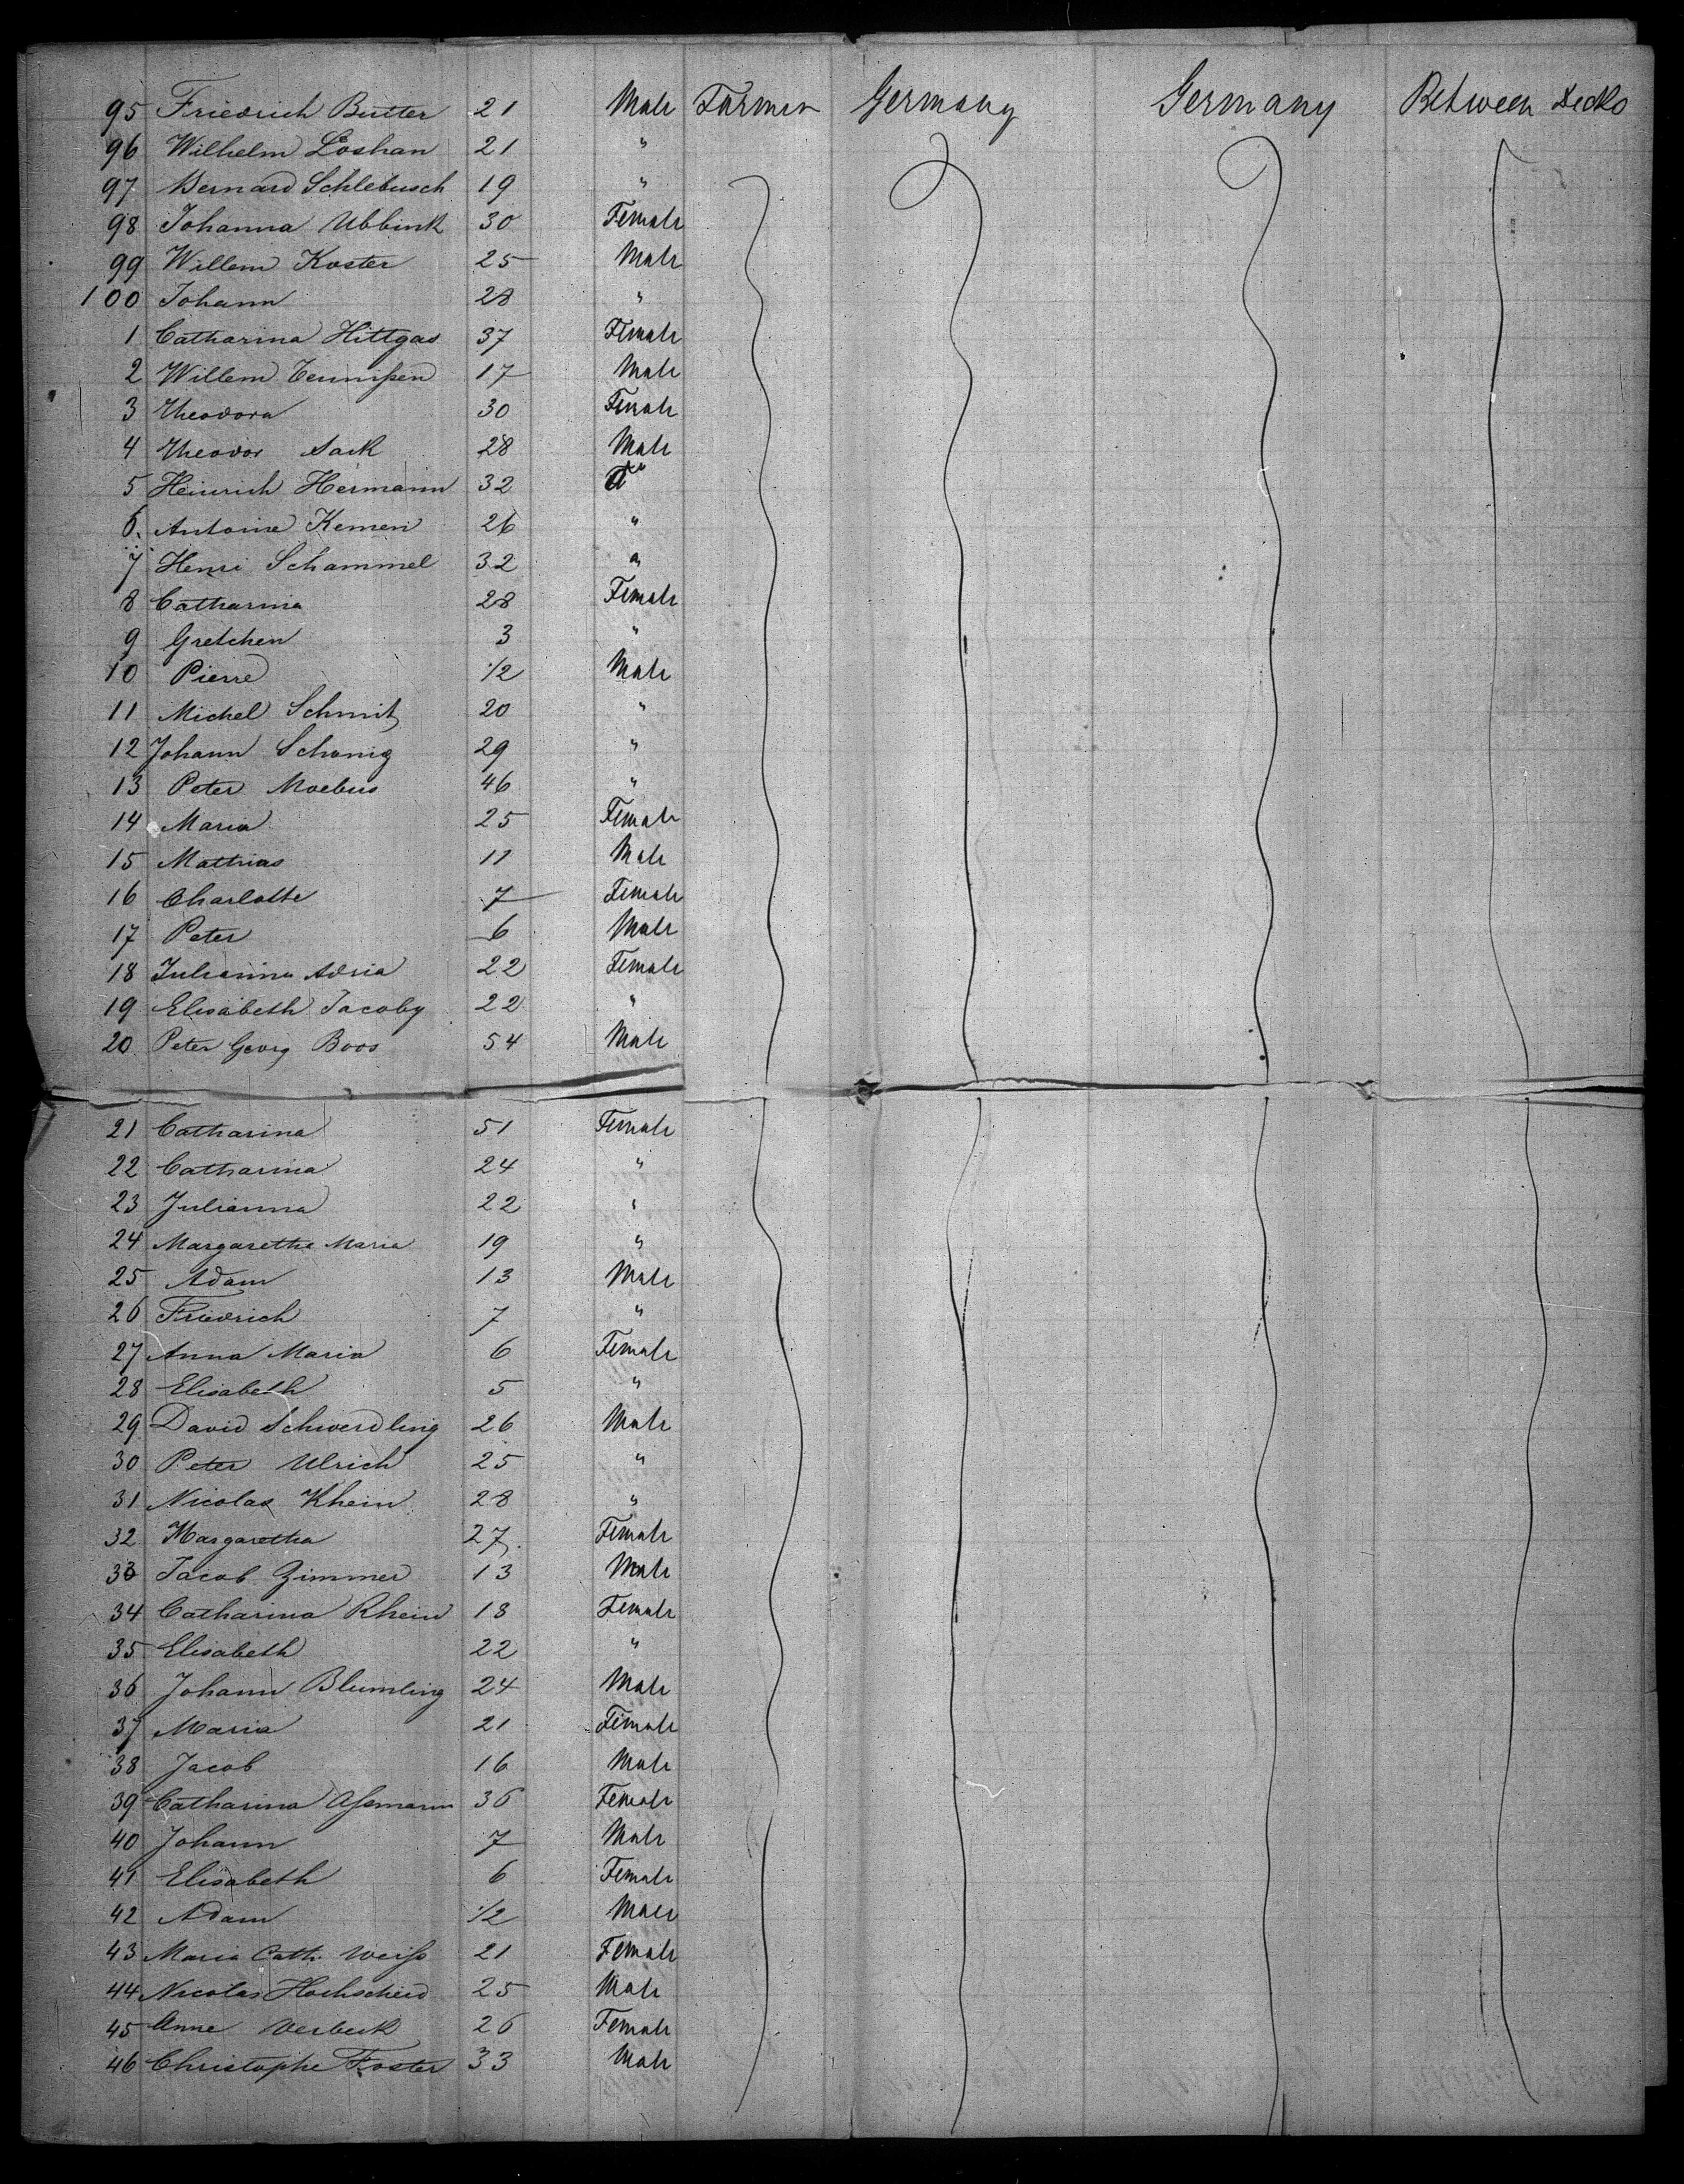 95 Friedrich Butter 21 Male Farmer Germany Germany Between Decks
96 Wilhelm Loshan 21 "
97 Bernard Schlebusch 19 "
98 Johanna Ubbink 30 Female
99 Willem Koster 25 Male
100 Johann 28 "
1 Catharina Hittgas 37 Female
2 Willem Teunißen 17 Male
3 Theodora 30 Female
4 Theodor Sack 28 Male
5 Heinrich Hermann 32 do
6. Antoine Kemen 26 "
7 Henri Schammel 32 "
8 Catharina 28 Female
9 Gretchen 3 "
10 Pierre 1/2 Male
11 Michel Schmit 20 "
12 Johann Schonig 29 "
13 Peter Moebus 46 "
14 Maria 25 Female
15 Mathias 11 Male
16 Charlotte 7 Female
17 Peter 6 Male
18 Julianna Adria 22 Female
19 Elisabeth Jacoby 22 "
20 Peter Georg Boos 54 Male
21 Catharina 51 Female
22 Catharina 24 "
23 Julianna 22 "
24 Margaretha Maria 19 "
25 Adam 13 Male
26 Friedrich 7 "
27 Anna Maria 6 Female
28 Elisabeth 5 "
29 David Schwerdling 26 Male
30 Peter Ulrich 25 "
31 Nicolas Rhein 28 "
32 Margaretha 27 Female
33 Jacob Zimmer 13 Male
34 Catharina Rhein 18 Female
35 Elisabeth 22 "
36 Johann Blumling 24 Male
37 Maria 21 Female
38 Jacob 16 Male
39 Catharina Aßmann 36 Female
40 Johann 7 Male
41 Elisabeth 6 Female
42 Adam 1/2 Male
43 Maria Cath. Weiß 21 Female
44 Nicolas Hochscheid 25 Male
45 Anne Verbeck 26 Female
46 Christophe Foster 33 Male